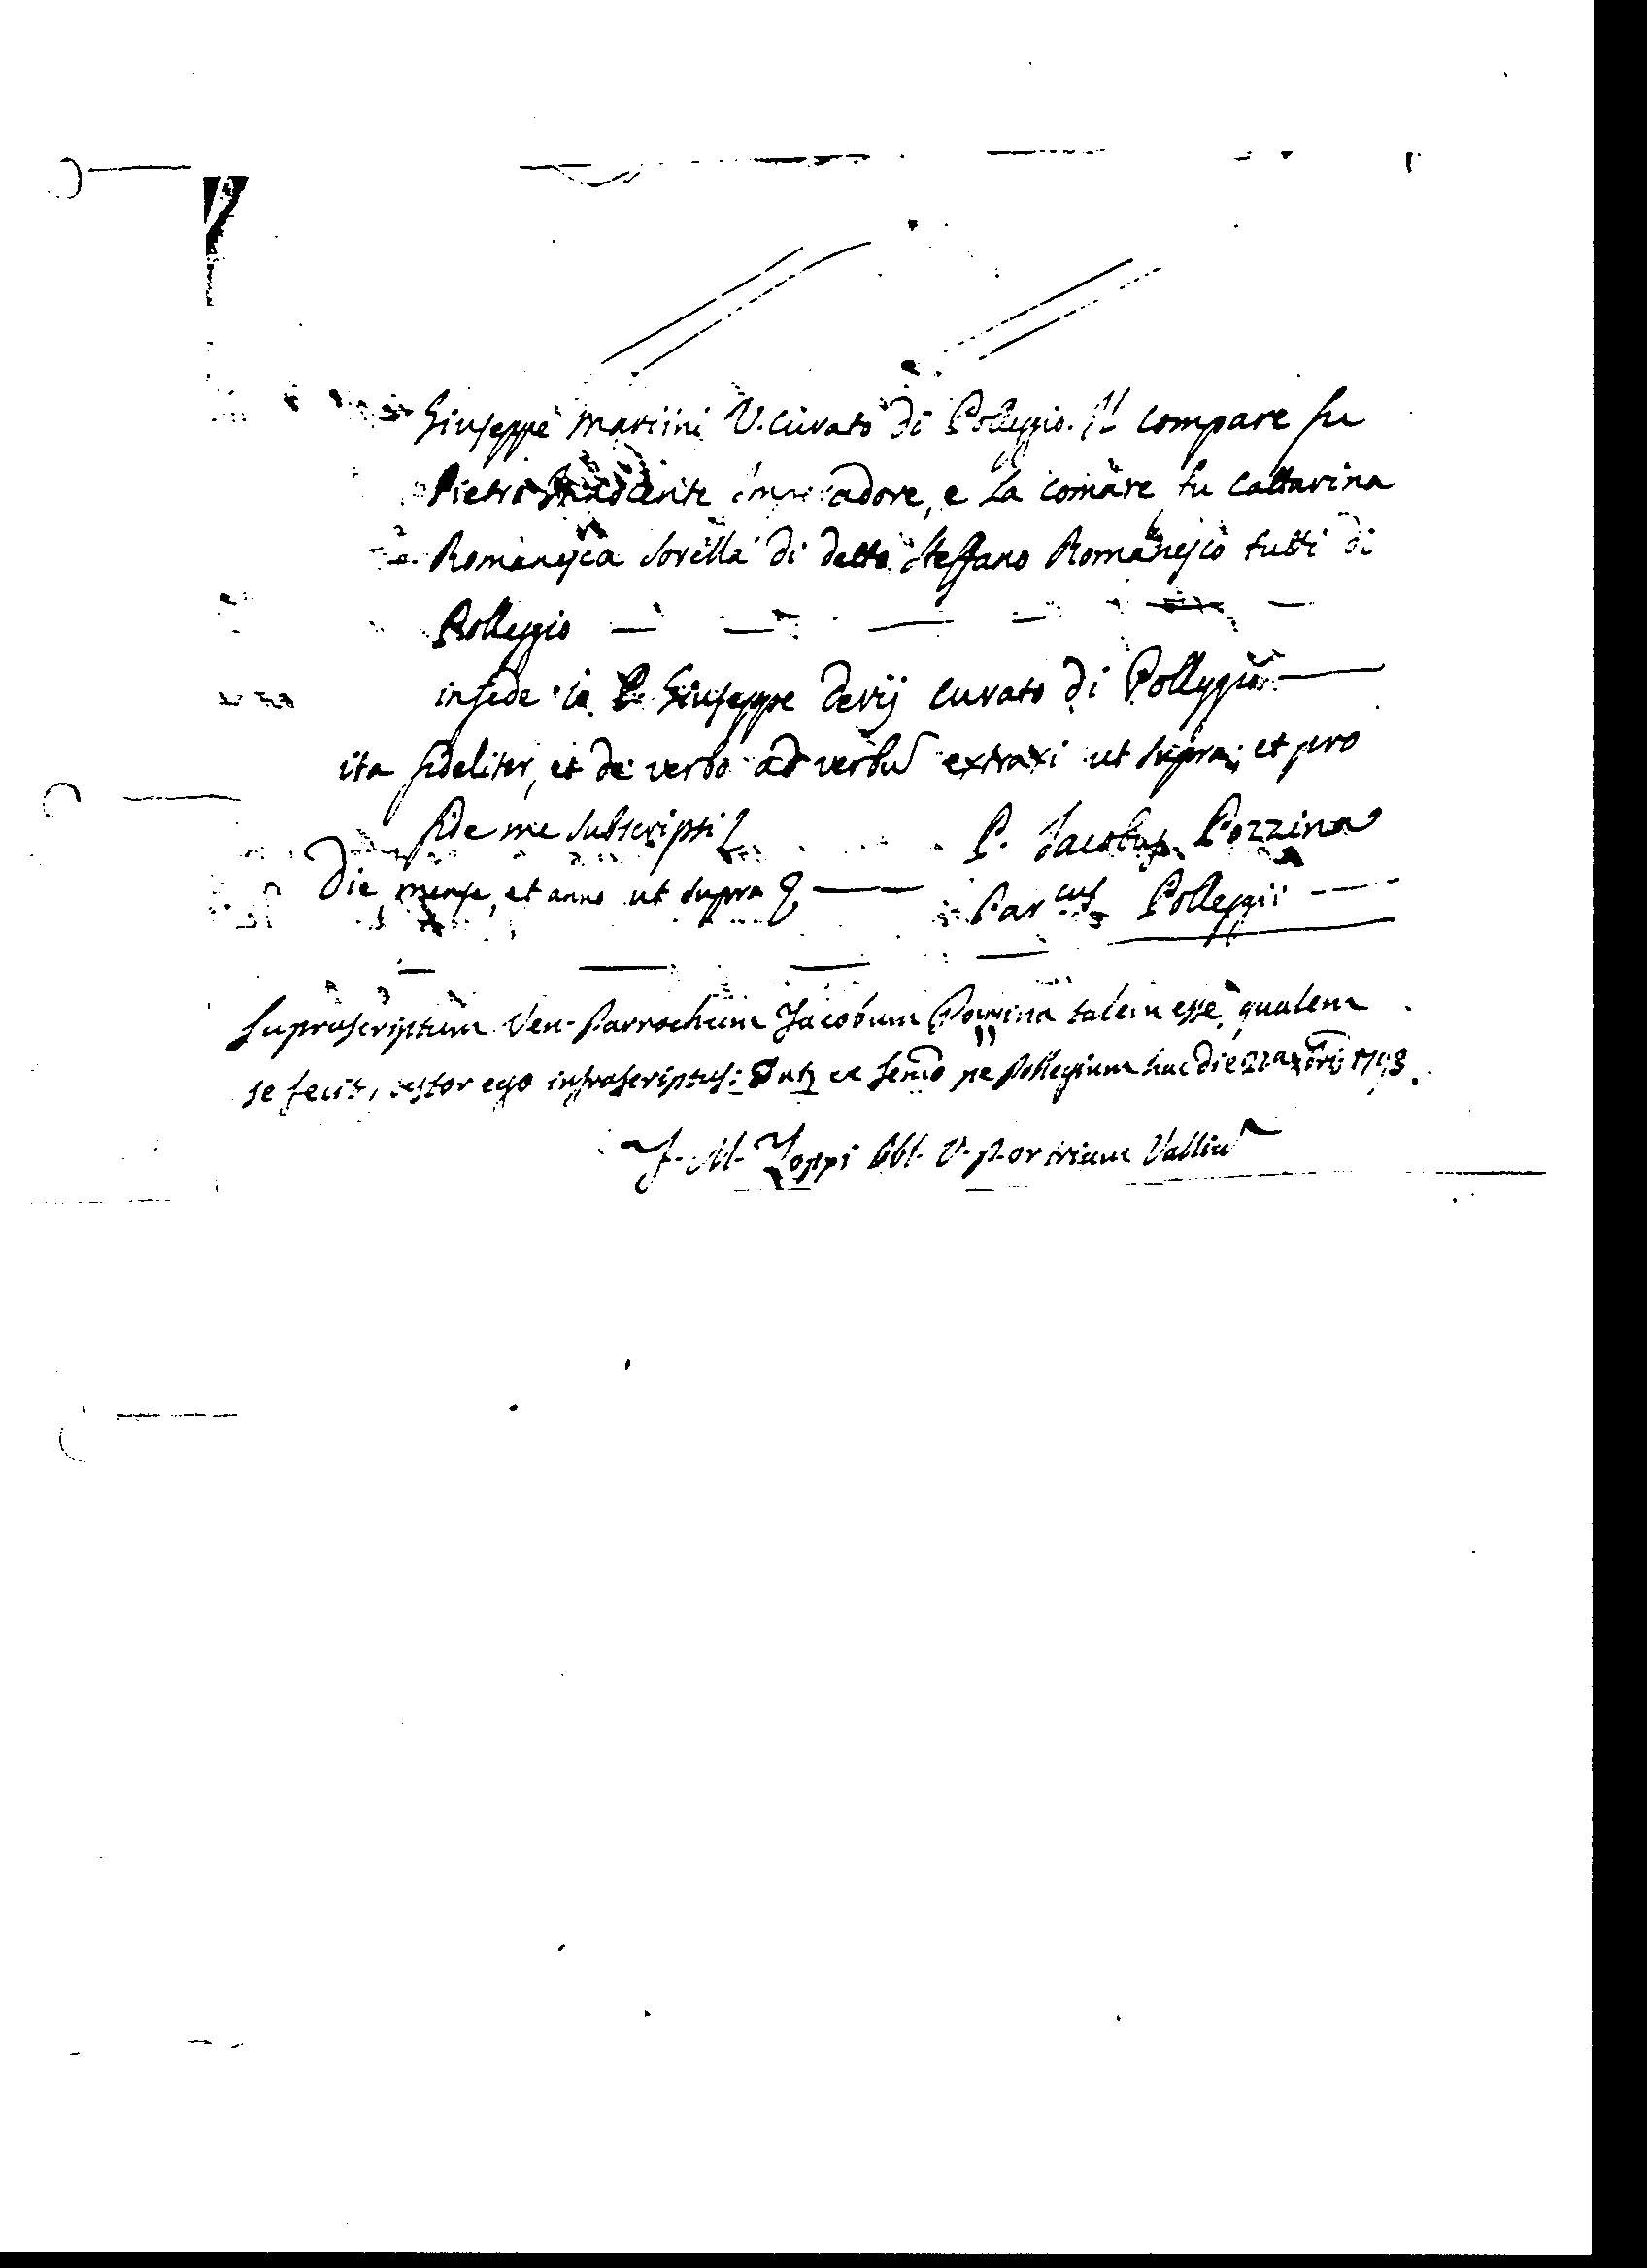 Giuseppe Martini V. Curato di Polleggio. Il compare fu
Pietro Innocente adore, e la comare fu Cattarina
Romanesca sorella di detto Steffano Romanesco tutti di
Polleggio
in fede io P. Giuseppe Curato di Polleggio
ita fideliter, et de verbo ad verbū extraxi ut supra; et pro
fide me subscripsi P. Jacobus Pozzina
Die, mense, et anno ut supra Par.cus Polleggii
Suprascriptum Ven. Parrochum Jacobum Pozzina talem esse, qualem
se fecit, testor ego infrascriptus: Pollegium hac die
J. M. Zoppi Abb. V. trium Valliū